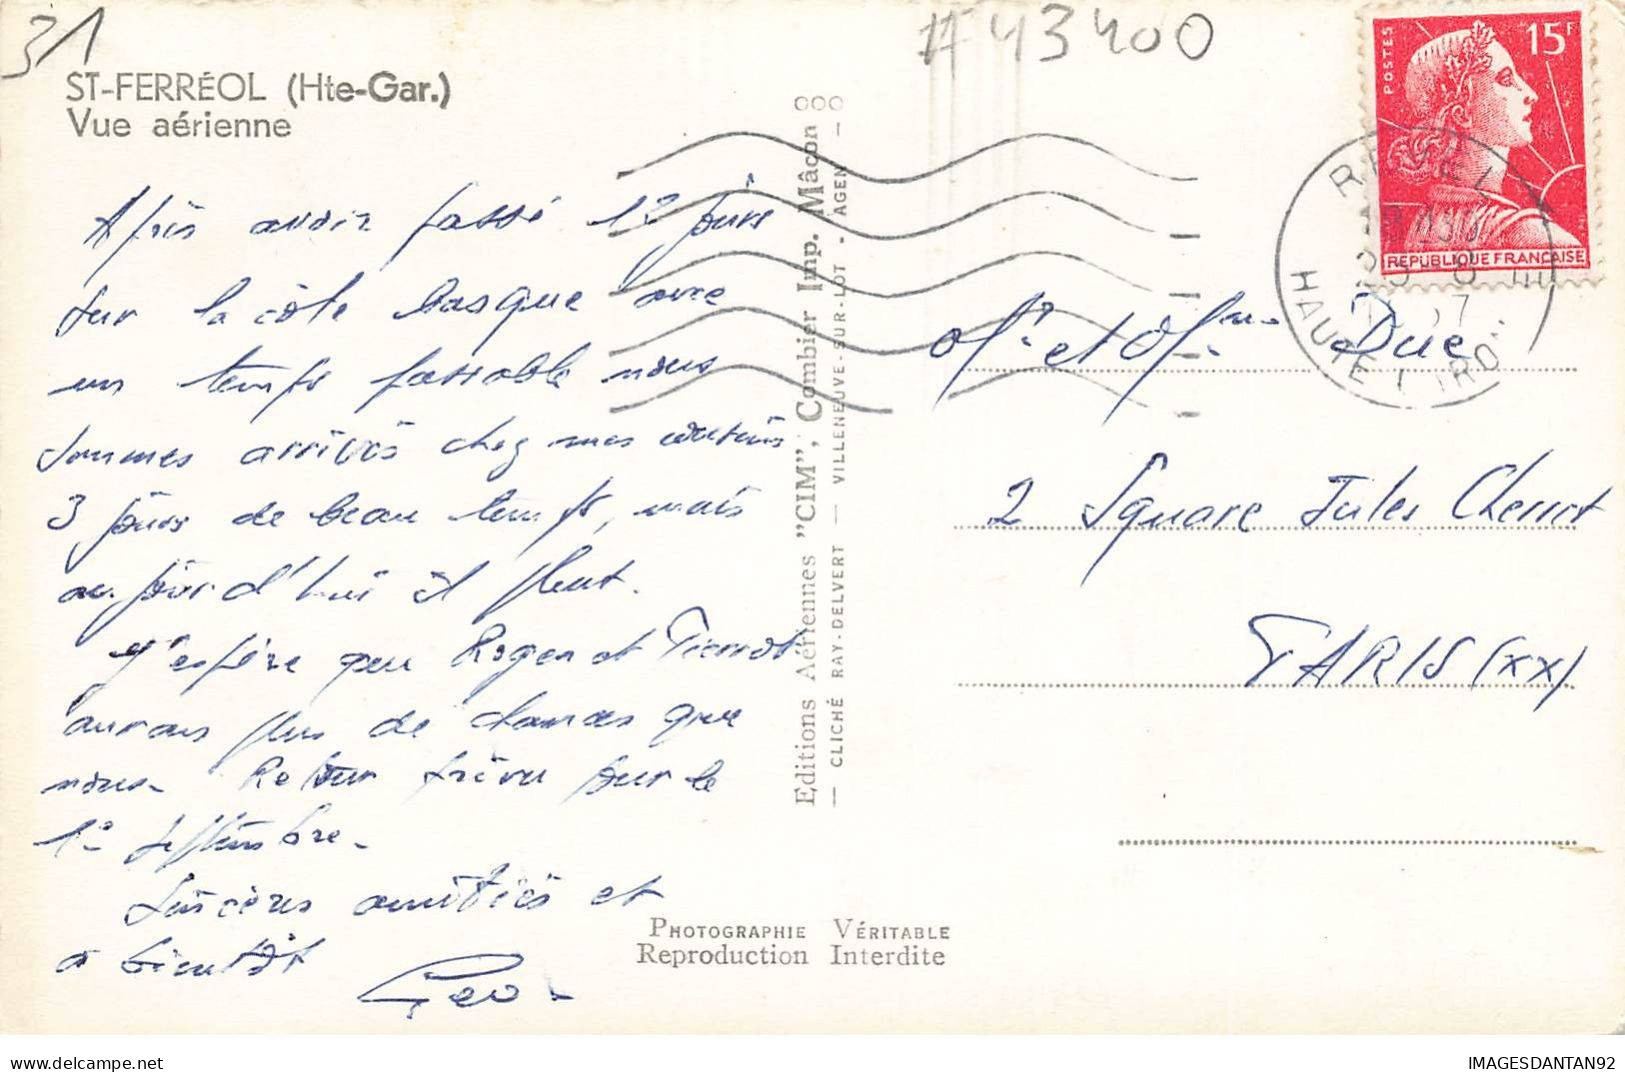 31
# 43400
ST-FERRÉOL (Hte-Gar.)
Vue aérienne
Après avoir passé 12 jours
sur la côte basque avec
un temps passable nous
sommes arrivés chez mes cousins
3 jours de beau temps, mais
aujourd'hui il pleut.
J'espère que Roger et Pierrot
aurons plus de chances que
nous. Retour prévu pour le
1er septembre.
Sincères amitiés et
à bientôt
Geo.
Editions Aériennes "CIM", Combier Imp. Mâcon
— CLICHÉ RAY-DELVERT — VILLENEUVE-SUR-LOT - AGEN —
PHOTOGRAPHIE VÉRITABLE
Reproduction Interdite
POSTES
15F
REPUBLIQUE FRANÇAISE
REVEL
HAUTE
Mr et Mme Due
2 Square Jules Cheret
PARIS (XX)
IMAGESDANTAN92